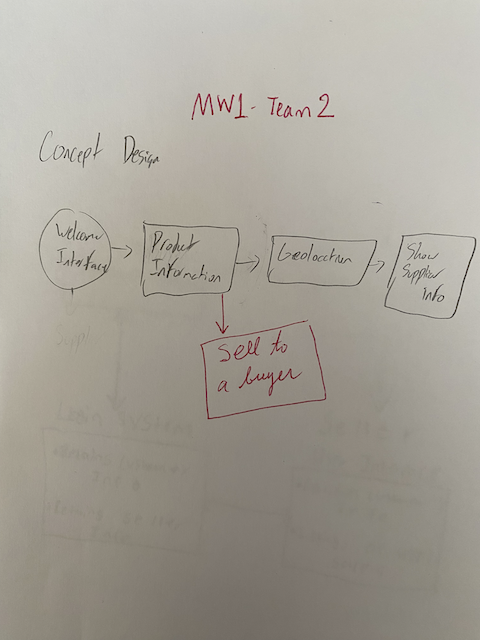 MW1 - Team 2
Concept Design
Welcome
Interface
Product
Information
Geolocation
Show
Supplier
info
Sell to
a buyer